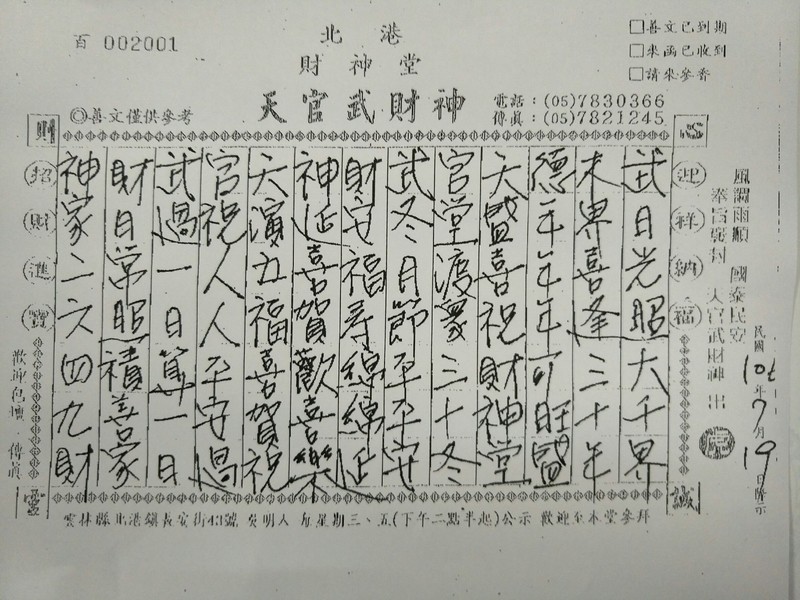 百 002001
北港
財神堂
天官武財神
◎善文僅供參考
□善文已到期
□來函已收到
□請來參香
電話：(05)7830366
傳真：(05)7821245
風調雨順 國泰民安
奉旨敕封 天官武財神 出
民國107年7月19日降示
心
迎祥納福
誠
武日光昭大千界
末界喜逢三十年
德年年年可旺盛
天盛喜祝財神堂
官堂渡眾三十冬
武冬月節平平安
財安福壽綿綿延
神延喜賀歡喜樂
天演五福喜賀祝
官祝人人平安過
武過一日算一日
財日常昭積喜家
神家二六四九財
財
招財進寶
靈
歡迎包壇 傳真
雲林縣北港鎮長安街43號 吳明人 每星期三、五(下午二點半起)公示 歡迎至本堂參拜